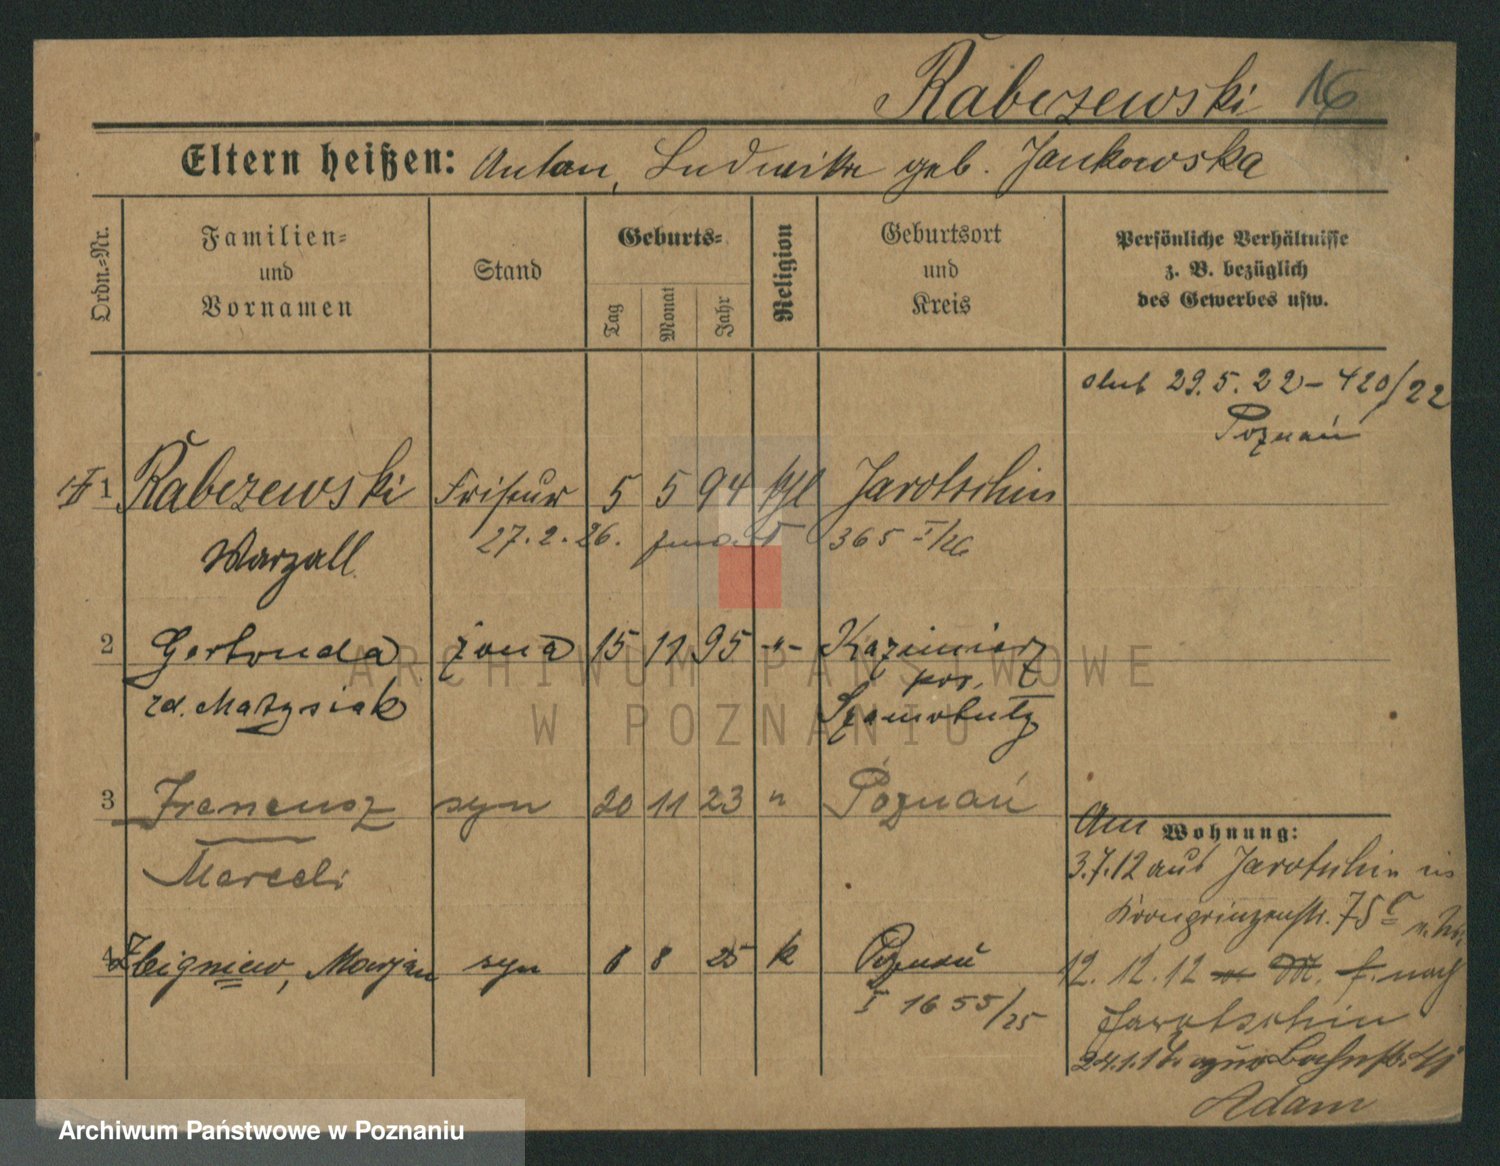 Rabczewski 16
Eltern heißen: Anton, Ludwika geb. Jankowska
Ordn.=Nr.
Familien=
und
Vornamen
Stand
Geburts=
Tag
Monat
Jahr
Religion
Geburtsort
und
Kreis
Persönliche Verhältnisse
z. B. bezüglich
des Gewerbes usw.
ślub 29.5.22 – 420/22
Poznań
1 Rabczewski Friseur 5 5 94 kthl Jarotschin
27.2.26. 365 I/26
Warzall
2 Gertruda żona 15 11 95 -"- Kaźmierz
zd. Matysiak pow.
Szamotuły
3 Franciusz syn 20 11 23 " Poznań
Marceli
4 Zbigniew, Marjan syn 8 25 k Poznań
I 1655/25
Wohnung:
Am
3.7.12 aus Jarotschin in
Kronprinzenstr. 75
12.12.12 nach
Jarotschin
24.1.
Adam
ARCHIWUM PAŃSTWOWE
W POZNANIU
Archiwum Państwowe w Poznaniu